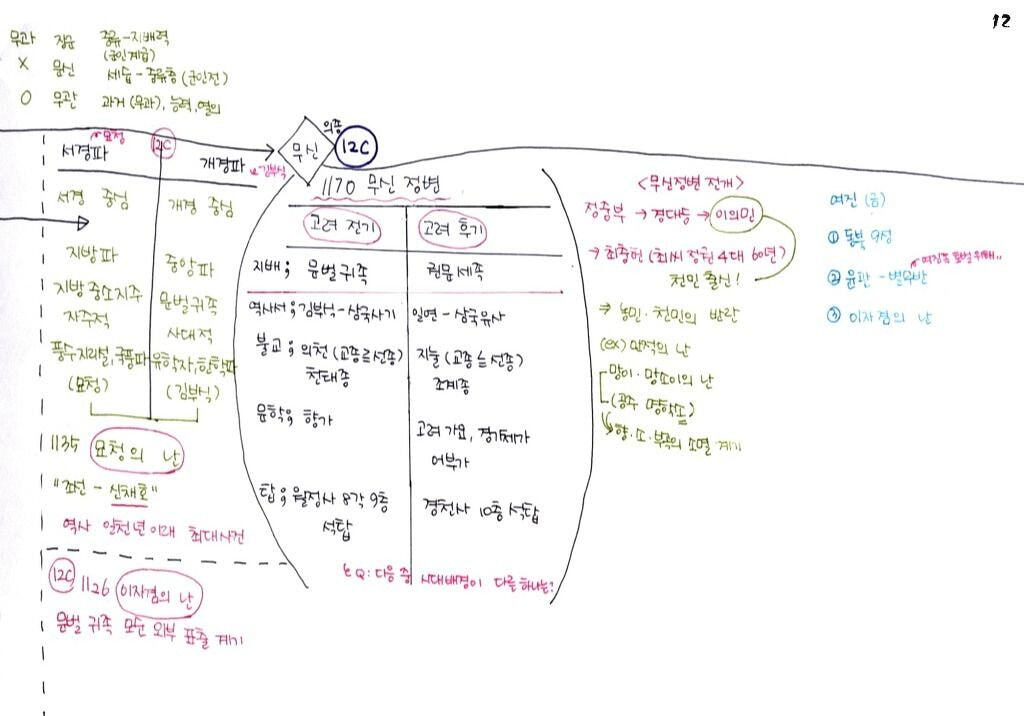 12
무과 장군 중류-지배력
(군인계급)
X 무신 세습-중류층(군인전)
O 무관 과거(무과), 능력, 열의
묘청
서경파
12C
개경파
김부식
서경 중심
개경 중심
지방파
중앙파
지방 중소지주
문벌귀족
자주적
사대적
풍수지리설, 국풍파
유학자, 한학파
(묘청)
(김부식)
1135 묘청의 난
"조선-신채호"
역사 일천년이래 최대사건
12C 1126 이자겸의 난
문벌 귀족 모순 외부 표출 계기
의종
무신
12C
1170 무신 정변
고려 전기
고려 후기
지배; 문벌귀족
권문세족
역사서; 김부식-삼국사기
일연-삼국유사
불교; 의천(교종≧선종)
지눌(교종≦선종)
천태종
조계종
문학; 향가
고려가요, 경기체가
어부가
탑; 월정사 8각 9층
석탑
경천사 10층 석탑
Q: 다음 중 시대배경이 다른 하나는?
<무신정변 전개>
정중부→경대승→이의민
→최충헌(최씨 정권 4대 60년)
천민 출신!
⇒ 농민·천민의 반란
(ex) 만적의 난
망이·망소이의 난
(공주 명학소)
향·소·부곡의 소멸 계기
여진(금)
① 동북 9성
여진족 토벌 위해..
② 윤관-별무반
③ 이자겸의 난